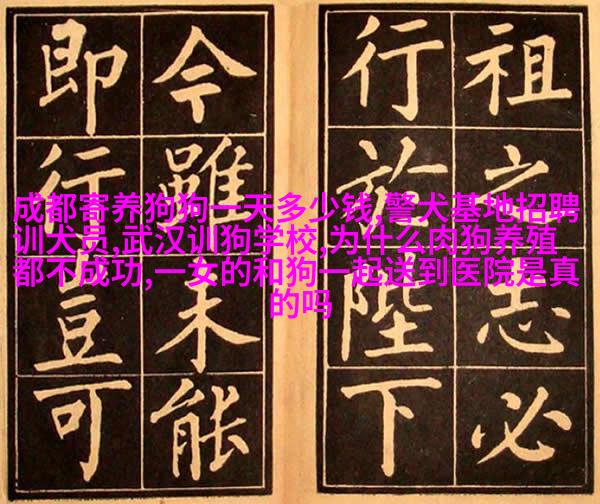 祖之志必
行於陛下
今雖未能
即行豈可
成都寄养狗狗一天多少钱,警犬基地招聘
训犬员,武汉训狗学校,为什么肉狗养殖
都不成功,一女的和狗一起送到医院是真
的吗